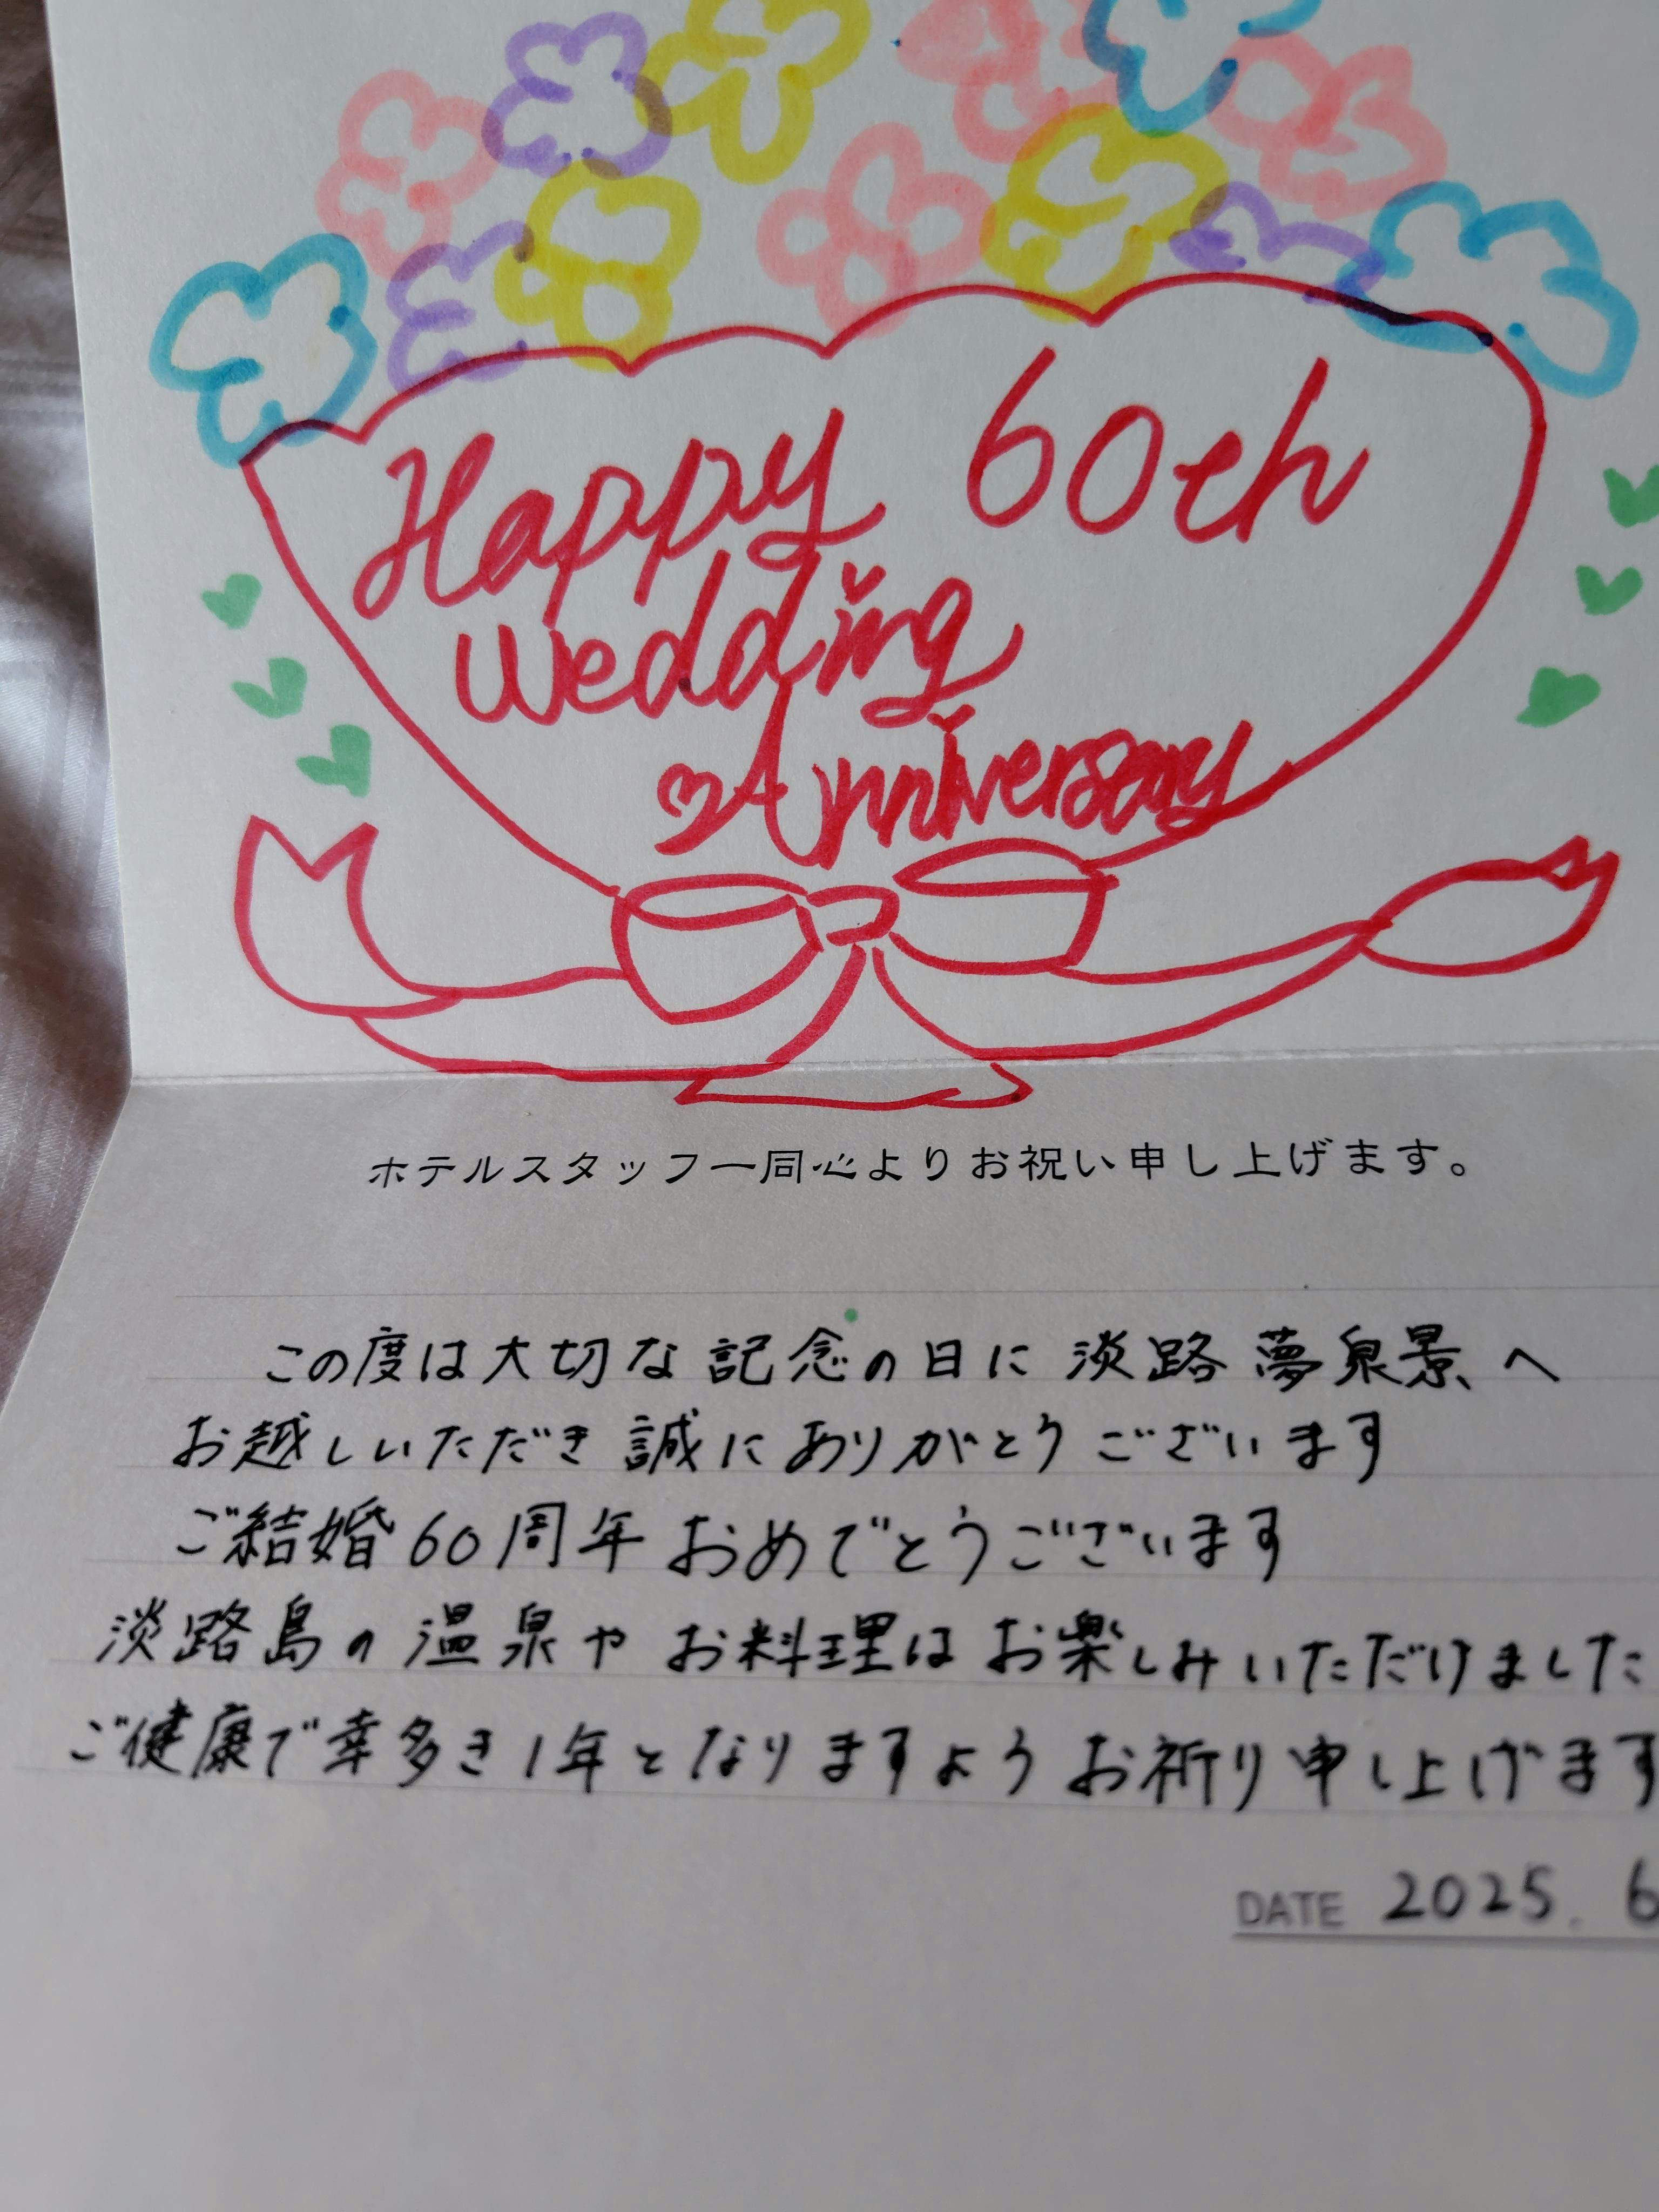 Happy 60th
Wedding
Anniversary
ホテルスタッフ一同心よりお祝い申し上げます。
この度は大切な記念の日に淡路夢泉景へ
お越しいただき誠にありがとうございます
ご結婚60周年おめでとうございます
淡路島の温泉やお料理はお楽しみいただけました
ご健康で幸多き1年となりますようお祈り申し上げます
DATE 2025. 6